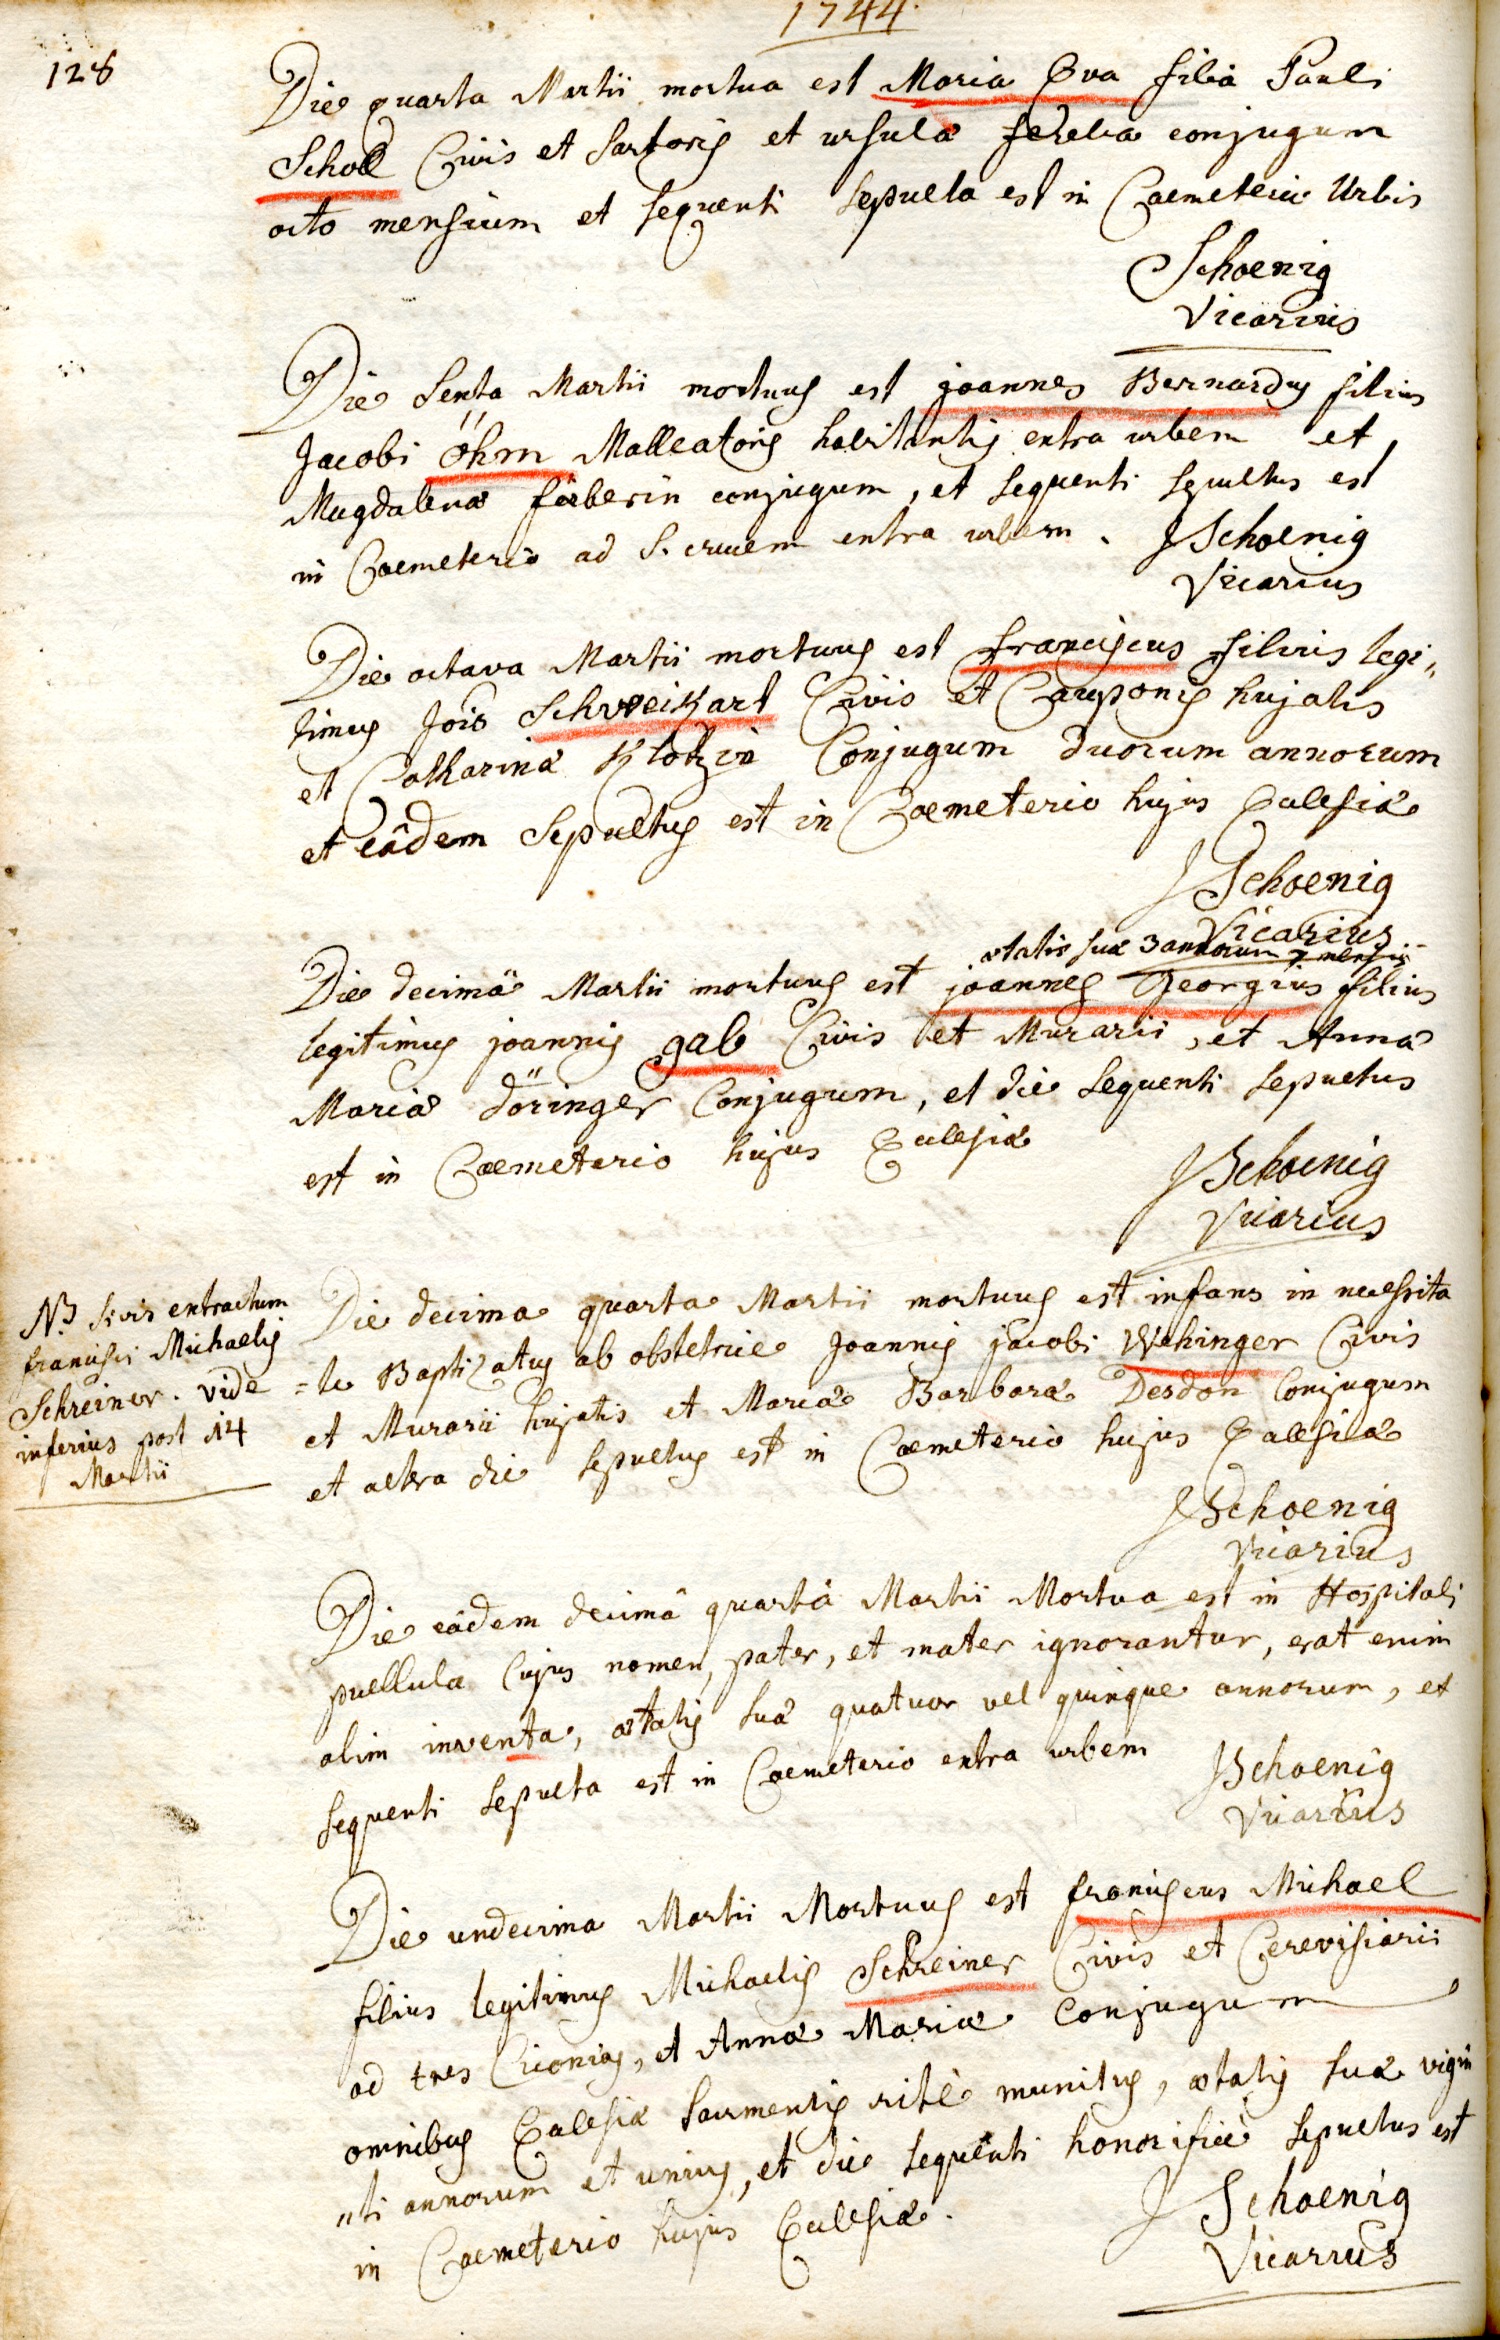 1744.
128
Die quarta Martii mortua est Maria Eva filia Pauli
Scholl Civis et Sartoris et ursulæ conjugum
octo mensium et sequenti sepulta est in Coemeterio Urbis
Schoenig
Vicarius
Die Sexta Martii mortuus est joannes Bernardus filius
Jacobi öhm Malleatoris habitantis extra urbem et
Magdalenæ färberin conjugum, et sequenti sepultus est
in Coemeterio ad S. crucem extra urbem. JSchoenig
Vicarius
Die octava Martii mortuus est franciscus filius legi„
timus Jois Schweikart Civis et Cauponis hujatis
et Catharinæ Klotzin Conjugum duorum annorum
et eâdem Sepultus est in Coemeterio hujus Ecclesiæ
JSchoenig
Vicarius
ætatis suæ 3 annorum 7 mensium
Die decimâ Martii mortuus est joannes Georgius filius
legitimus joannis gab Civis et Murarii, et Annæ
Mariæ döringer Conjugum, et die sequenti sepultus
est in Coemeterio hujus Ecclesiæ
JSchoenig
Vicarius
NB si vis extractum
francisci Michaelis
Schreiner. vide
inferius post 14
Martii
Die decima quarta Martii mortuus est infans in necessita
=te Baptizatus ab obstetrice Joannis jacobi Wehinger Civis
et Murarii hujatis et Mariæ Barbaræ Desdon Conjugum
et altera die sepultus est in Coemeterio hujus Ecclesiæ
JSchoenig
Vicarius
Die eâdem decimâ quartâ Martii Mortua est in Hospitali
puellula Cujus nomen, pater, et mater ignorantur, erat enim
olim inventa, ætatis suæ quatuor vel quinque annorum, et
sequenti sepulta est in Coemeterio extra urbem
JSchoenig
Vicarius
Die undecima Martii Mortuus est franciscus Michael
filius legitimus Michaelis Schreiner Civis et Cerevisiarii
ad tres Ciconias, et Annæ Mariæ Conjugum
omnibus Ecclesiæ Sacramentis ritè munitus, ætatis suæ vigin
„ti annorum et unius, et die sequenti honorificè sepultus est
in Coemeterio hujus Ecclesiæ.
J Schoenig
Vicarius